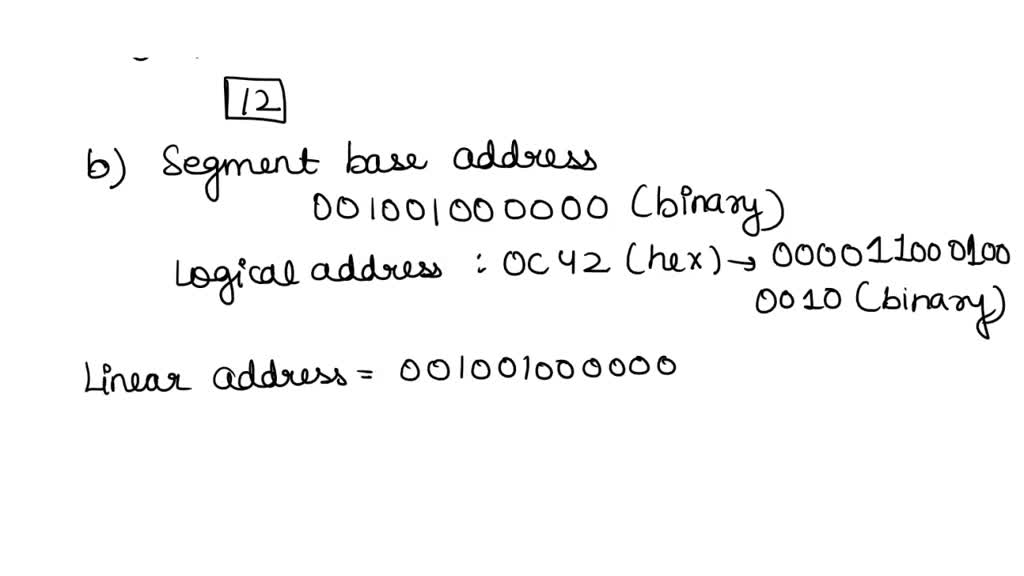 12
b) Segment base address
001001000000 (binary)
Logical address : 0C42 (hex) → 000011000100
0010 (binary)
Linear address = 001001000000